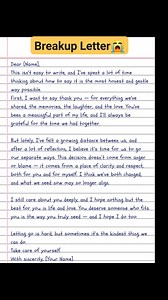 Breakup Letter😭
Dear [Name],
This isn't easy to write, and I've spent a lot of time
thinking about how to say it is the most honest and gentle
way possible.
First, I want to say thank you — for everything we've
shared, the memories, the laughter, and the love. You've
been a meaningful part of my life, and I'll always
be grateful for the time we had together.
But lately, I've felt a growing distance between us, and
after a lot of reflection, I believe it's time for us to go
our separate ways. This decision doesn't come from anger
or blame — it comes from a place of clarity and respect,
both for you and for myself. I think we've both changed,
and what we need now may no longer align.
I still care about you deeply, and I hope nothing but the
best for you in life and love. You deserve someone who fits
you in the way you truly need — and I hope I do too.
Letting go is hard, but sometimes it's the kindest thing we
can do.
Take care of yourself.
With sincerity, [Your Name]